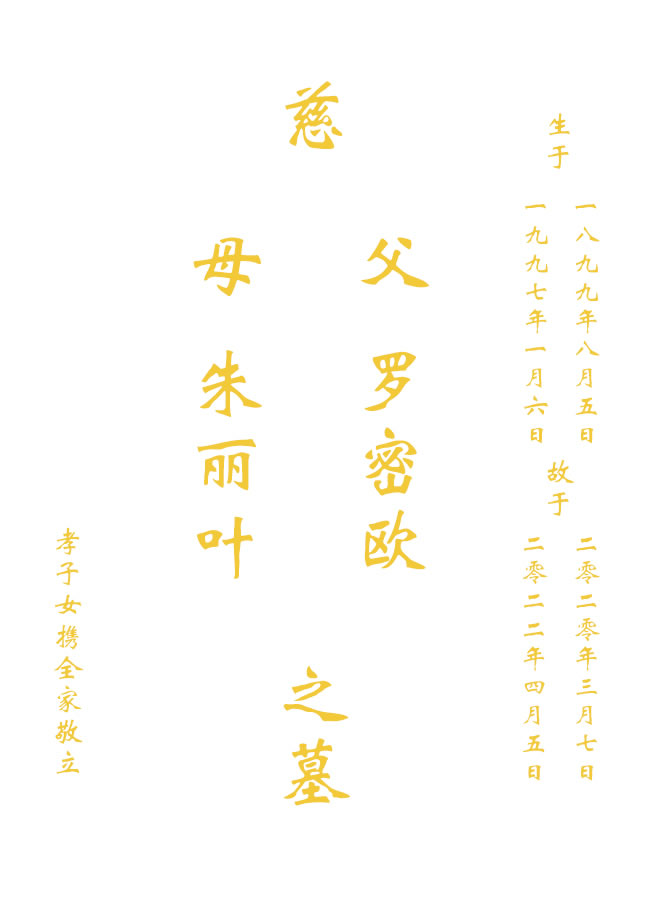 生于
一八九九年八月五日
一九九七年一月六日
故于
二零二零年三月七日
二零二二年四月五日
慈
父 罗密欧
母 朱丽叶
之墓
孝子女携全家敬立